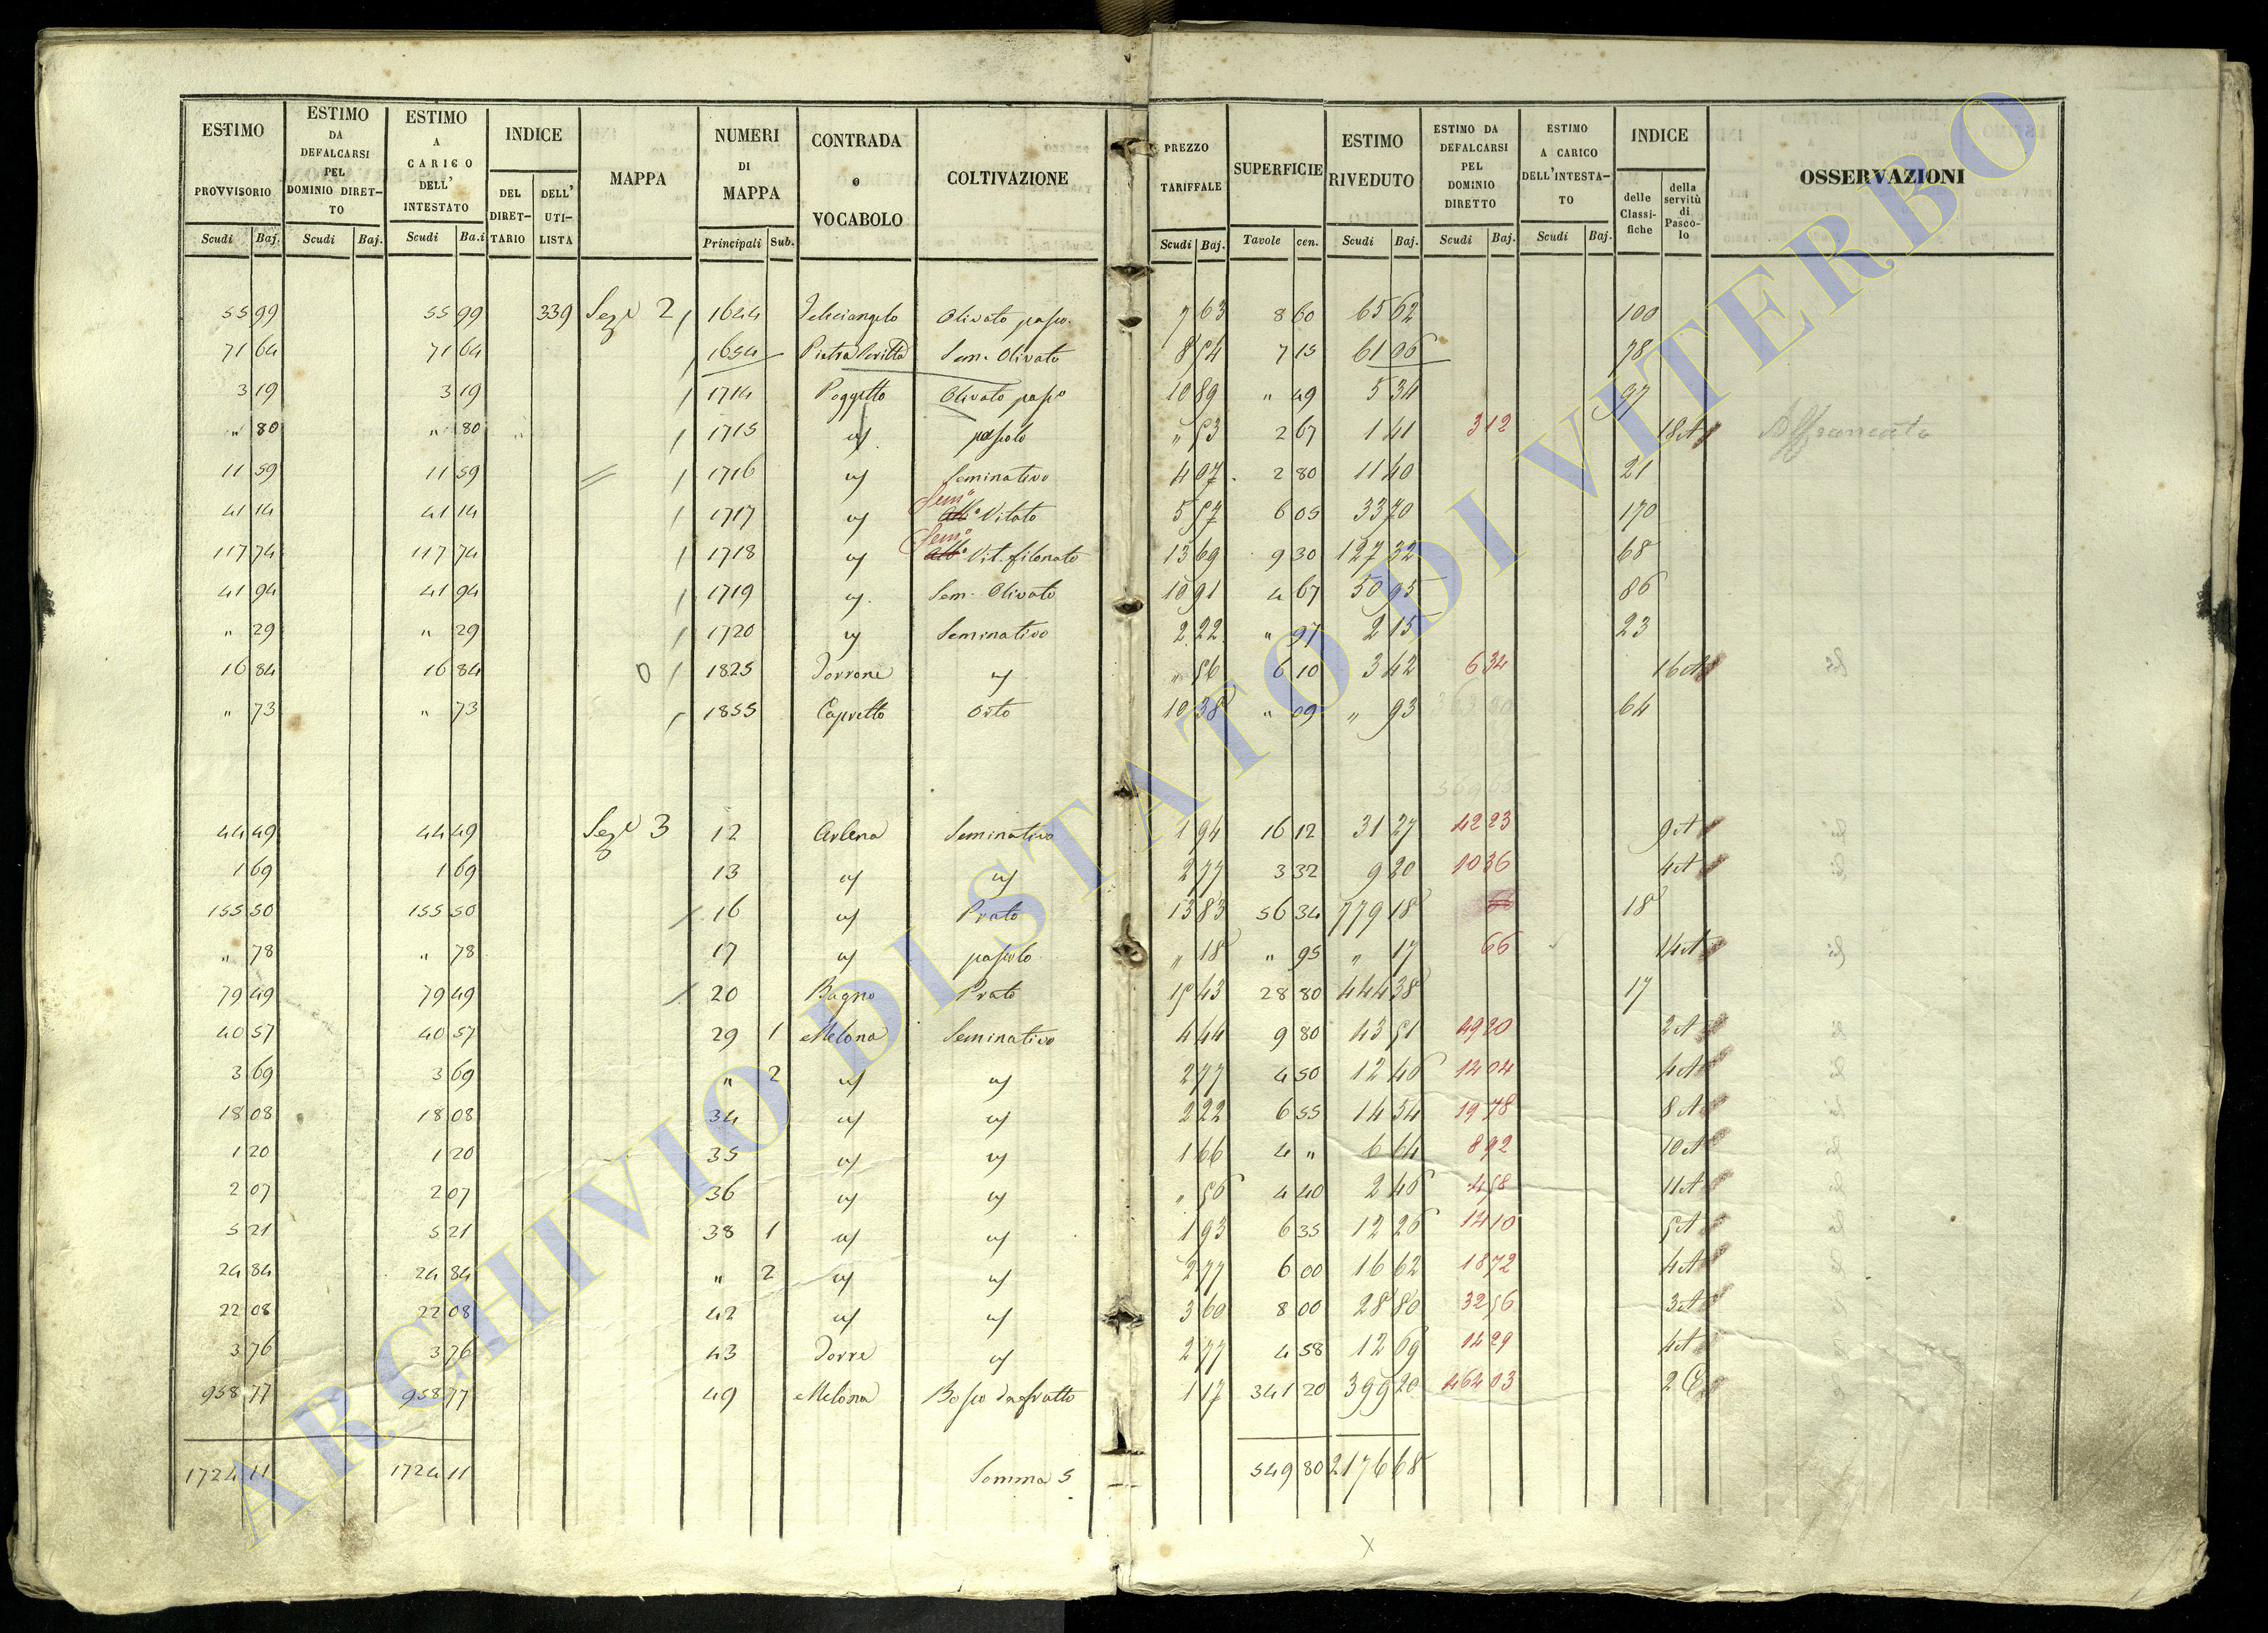 ESTIMO PROVVISORIO Scudi Baj.
ESTIMO DA DEFALCARSI PEL DOMINIO DIRET-TO Scudi Baj.
ESTIMO A CARICO DELL' INTESTATO Scudi Ba.i
INDICE DEL DIRET-TARIO DELL' UTI-LISTA
MAPPA
NUMERI DI MAPPA Principali Sub.
CONTRADA o VOCABOLO
COLTIVAZIONE
PREZZO TARIFFALE Scudi Baj.
SUPERFICIE Tavole cen.
ESTIMO RIVEDUTO Scudi Baj.
ESTIMO DA DEFALCARSI PEL DOMINIO DIRETTO Scudi Baj.
ESTIMO A CARICO DELL'INTESTA-TO Scudi Baj.
INDICE delle Classi-fiche della servitù di Pasco-lo
OSSERVAZIONI
55 99 55 99 339 Sez.e 2 1644 Feliciangelo Olivato pasco. 7 63 8 60 65 62 100
71 64 71 64 1654 Pietra Scritta Sem. Olivato 8 54 7 15 61 06 78
3 19 3 19 1714 Poggetto Olivato pasco 10 89 " 49 5 34 97
" 80 " 80 1715 " pascolo " 53 2 67 1 41 3 12 18 A Affrancato
11 59 11 59 1716 " Seminativo 4 07 2 80 11 40 21
41 14 41 14 1717 " Sem.o Vitato 5 57 6 05 33 70 170
117 74 117 74 1718 " Sem.o Vit. filonato 13 69 9 30 127 32 68
41 94 41 94 1719 " Sem. Olivato 10 91 4 67 50 95 86
" 29 " 29 1720 " Seminativo 2 22 " 97 2 15 23
16 84 16 84 1825 Torrone " " 56 6 10 3 42 6 34 16 A
" 73 " 73 1855 Capretto Orto 10 38 " 09 " 93 64
44 49 44 49 Sez.e 3 12 Arlena Seminativo 1 94 16 12 31 27 42 23 9 A
1 69 1 69 13 " " 2 77 3 32 9 20 10 36 4 A
155 50 155 50 16 " Prato 13 83 56 34 779 18 18
" 78 " 78 17 " pascolo " 18 " 95 " 17 66 14 A
79 49 79 49 20 Bagno Prato 15 43 28 80 444 38 17
40 57 40 57 29 1 Melona Seminativo 4 44 9 80 43 51 49 20 2 A
3 69 3 69 " 2 " " 2 77 4 50 12 46 14 04 4 A
18 08 18 08 34 " " 2 22 6 55 14 54 19 78 8 A
1 20 1 20 35 " " 1 66 4 " 6 64 8 92 10 A
2 07 2 07 36 " " " 56 4 40 2 46 4 58 11 A
5 21 5 21 38 1 " " 1 93 6 35 12 26 14 10 5 A
24 84 24 84 " 2 " " 2 77 6 00 16 62 18 72 4 A
22 08 22 08 42 " " 3 60 8 00 28 80 32 56 3 A
3 76 3 76 43 Torre " 2 77 4 58 12 69 14 29 4 A
958 77 958 77 49 Melona Bosco da frutto 1 17 341 20 399 20 464 03 2
1724 11 1724 11 Somma S. 549 80 2176 68
ARCHIVIO DI STATO DI VITERBO